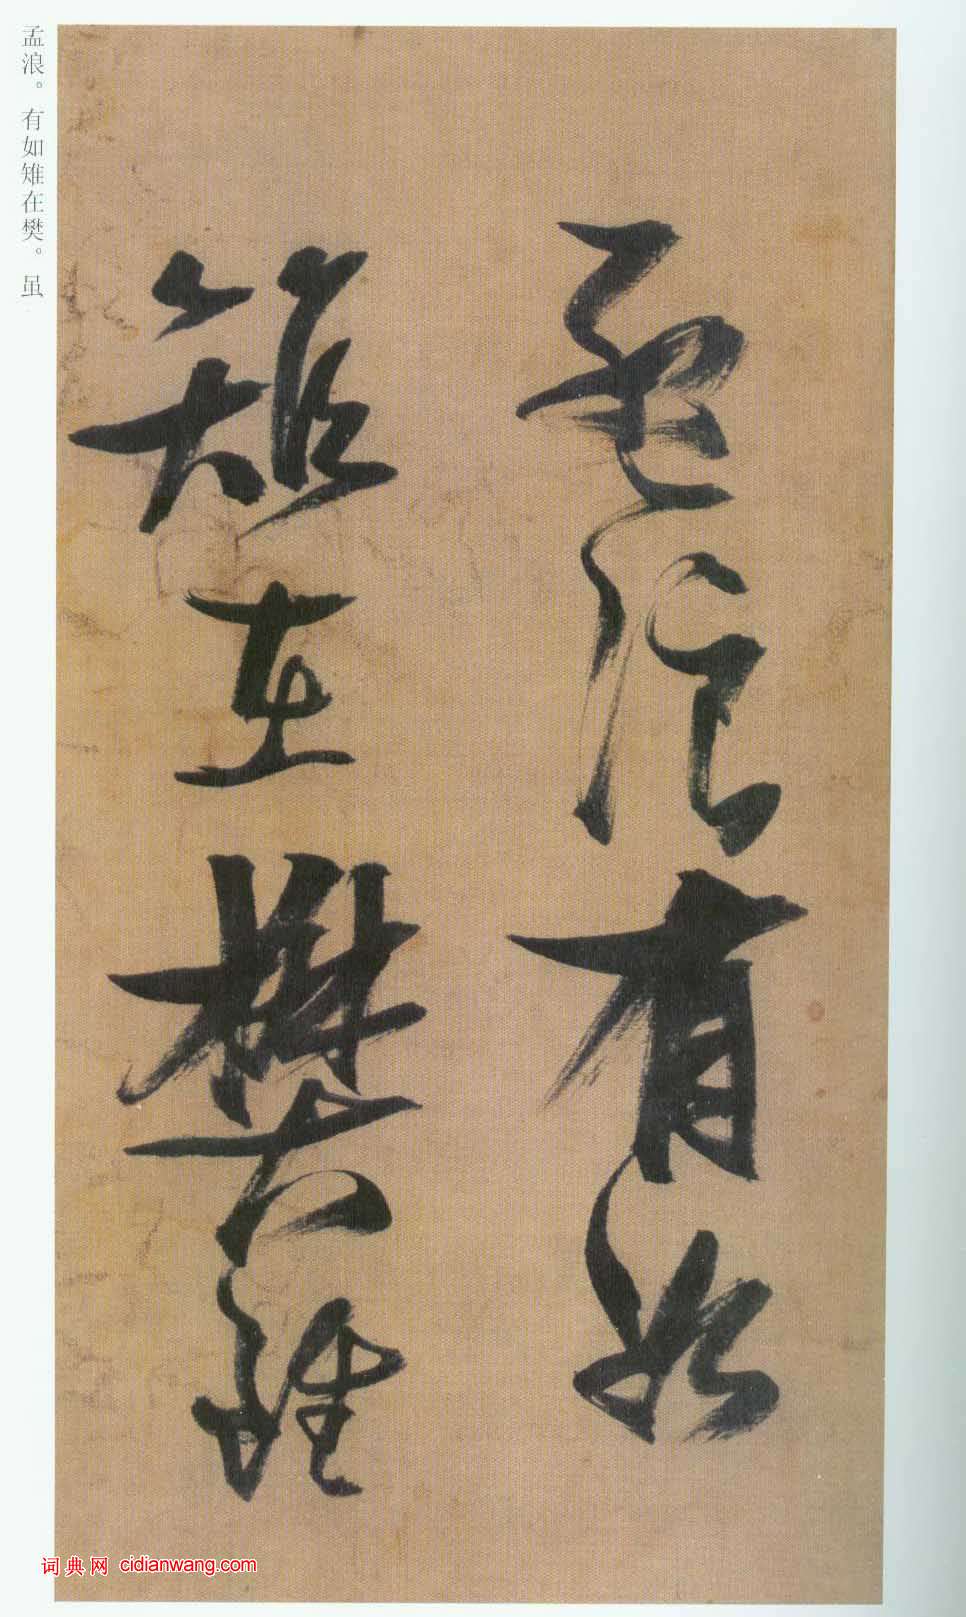 孟浪有如
雉在樊雖
孟浪。有如雉在樊。虽
词典网 cidianwang.com